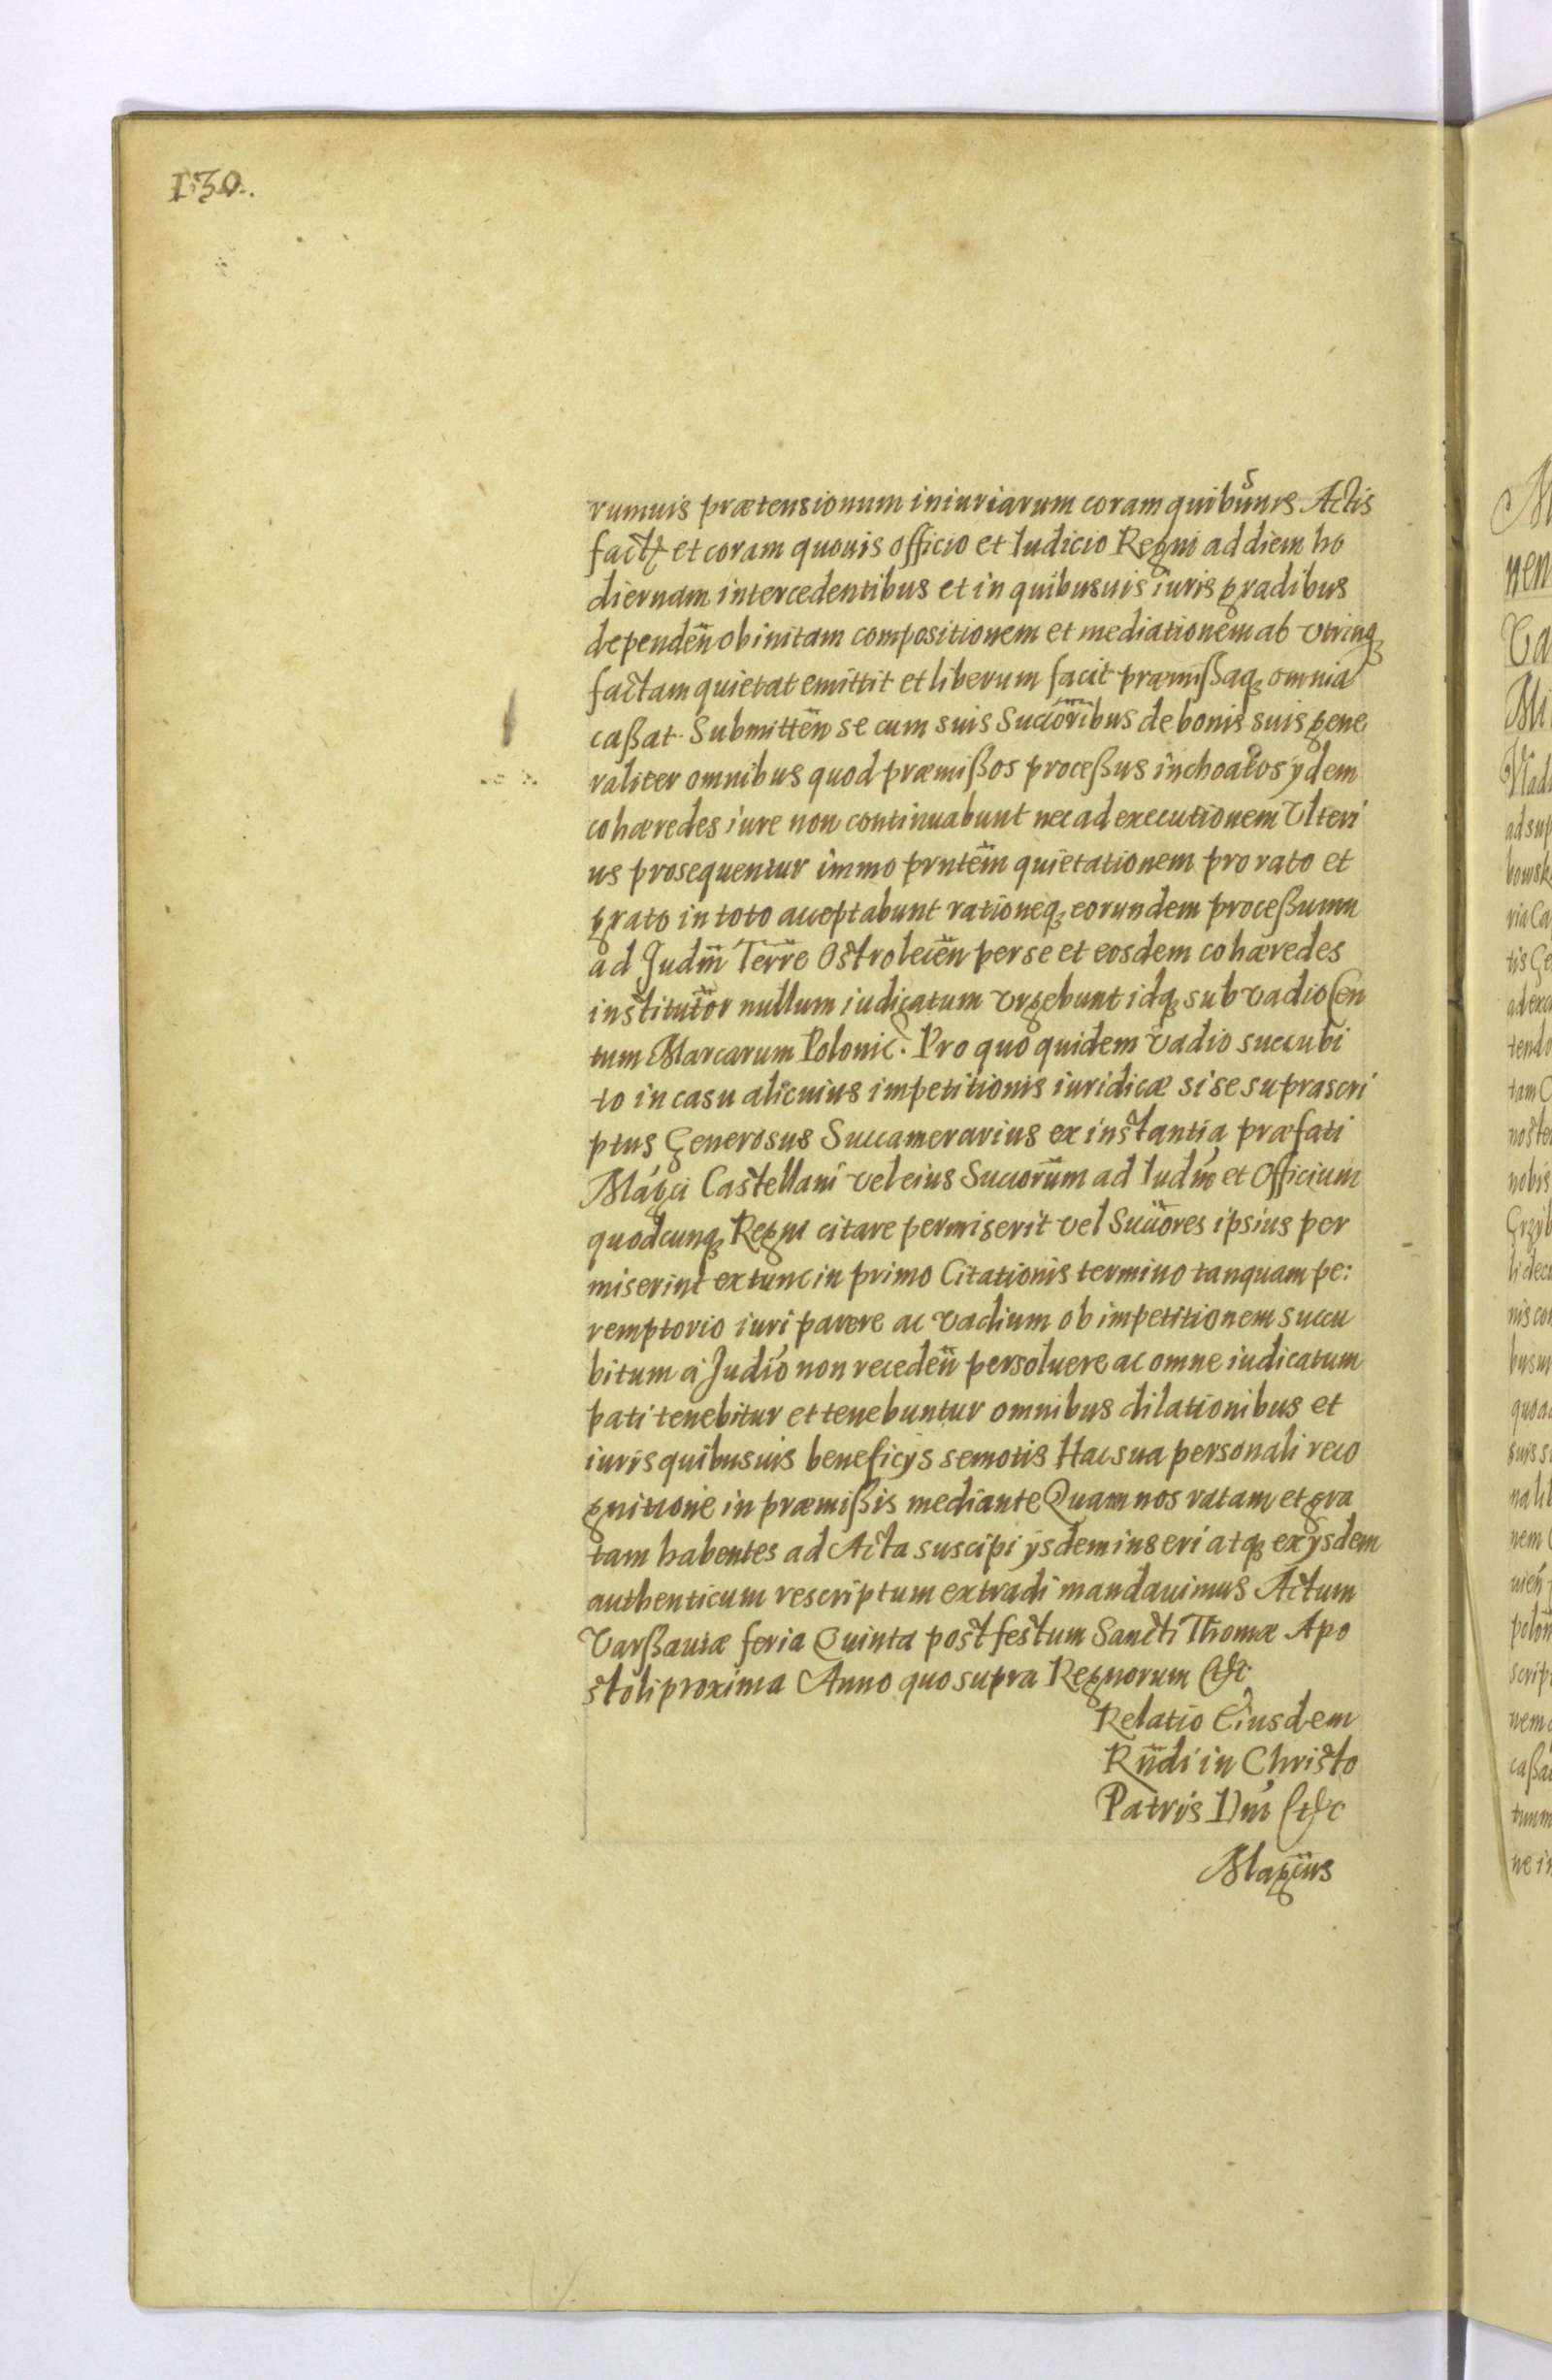 130.
rumuis prætensionum iniuriarum coram quibusuis Actis
fact et coram quouis officio et Iudicio Regni ad diem ho
diernam intercedentibus et in quibusuis iuris gradibus
dependen̄ ob initam compositionem et mediationem ab vtrinq
factam quietat emittit et liberum facit præmißaq omnia
caßat. Submitten̄ se cum suis Succoribus de bonis suis gene
raliter omnibus quod præmißos proceßus inchoatos ydem
cohæredes iure non continuabunt nec ad executionem Vlteri
us prosequentur immo prntem̄ quietationem pro rato et
grato in toto acceptabunt rationeq eorundem proceßuum
ad Judm̄ Terre Ostrolecen̄ per se et eosdem cohæredes
institutor nullum iudicatum vrgebunt idq sub vadio Cen
tum Marcarum Polonic. Pro quo quidem vadio succubi
to in casu alicuius impetitionis iuridicæ si se suprascri
ptus Generosus Succamerarius ex instantia præfati
Magci Castellani vel eius Succorum ad Iudm et Officium
quodcunq Regni citare permiserit vel Succores ipsius per
miserint extunc in primo Citationis termino tanquam pe:
remptorio iuri parere ac vadium ob impetitionem succu
bitum a Judio non receden̄ persoluere ac omne iudicatum
pati tenebitur et tenebuntur omnibus dilationibus et
iuris quibusuis beneficÿs semotis Hac sua personali reco
gnitione in præmißis mediante Quam nos ratam et gra
tam habentes ad Acta suscipi ÿsdem inseri atq ex ÿsdem
authenticum rescriptum extradi mandauimus Actum
Varßauiæ feria Quinta post festum Sancti Thomæ Apo
stoli proxima Anno quo supra Regnorum &c
Relatio Eiusdem
Rn̄di in Christo
Patris Dni &c
Magcus